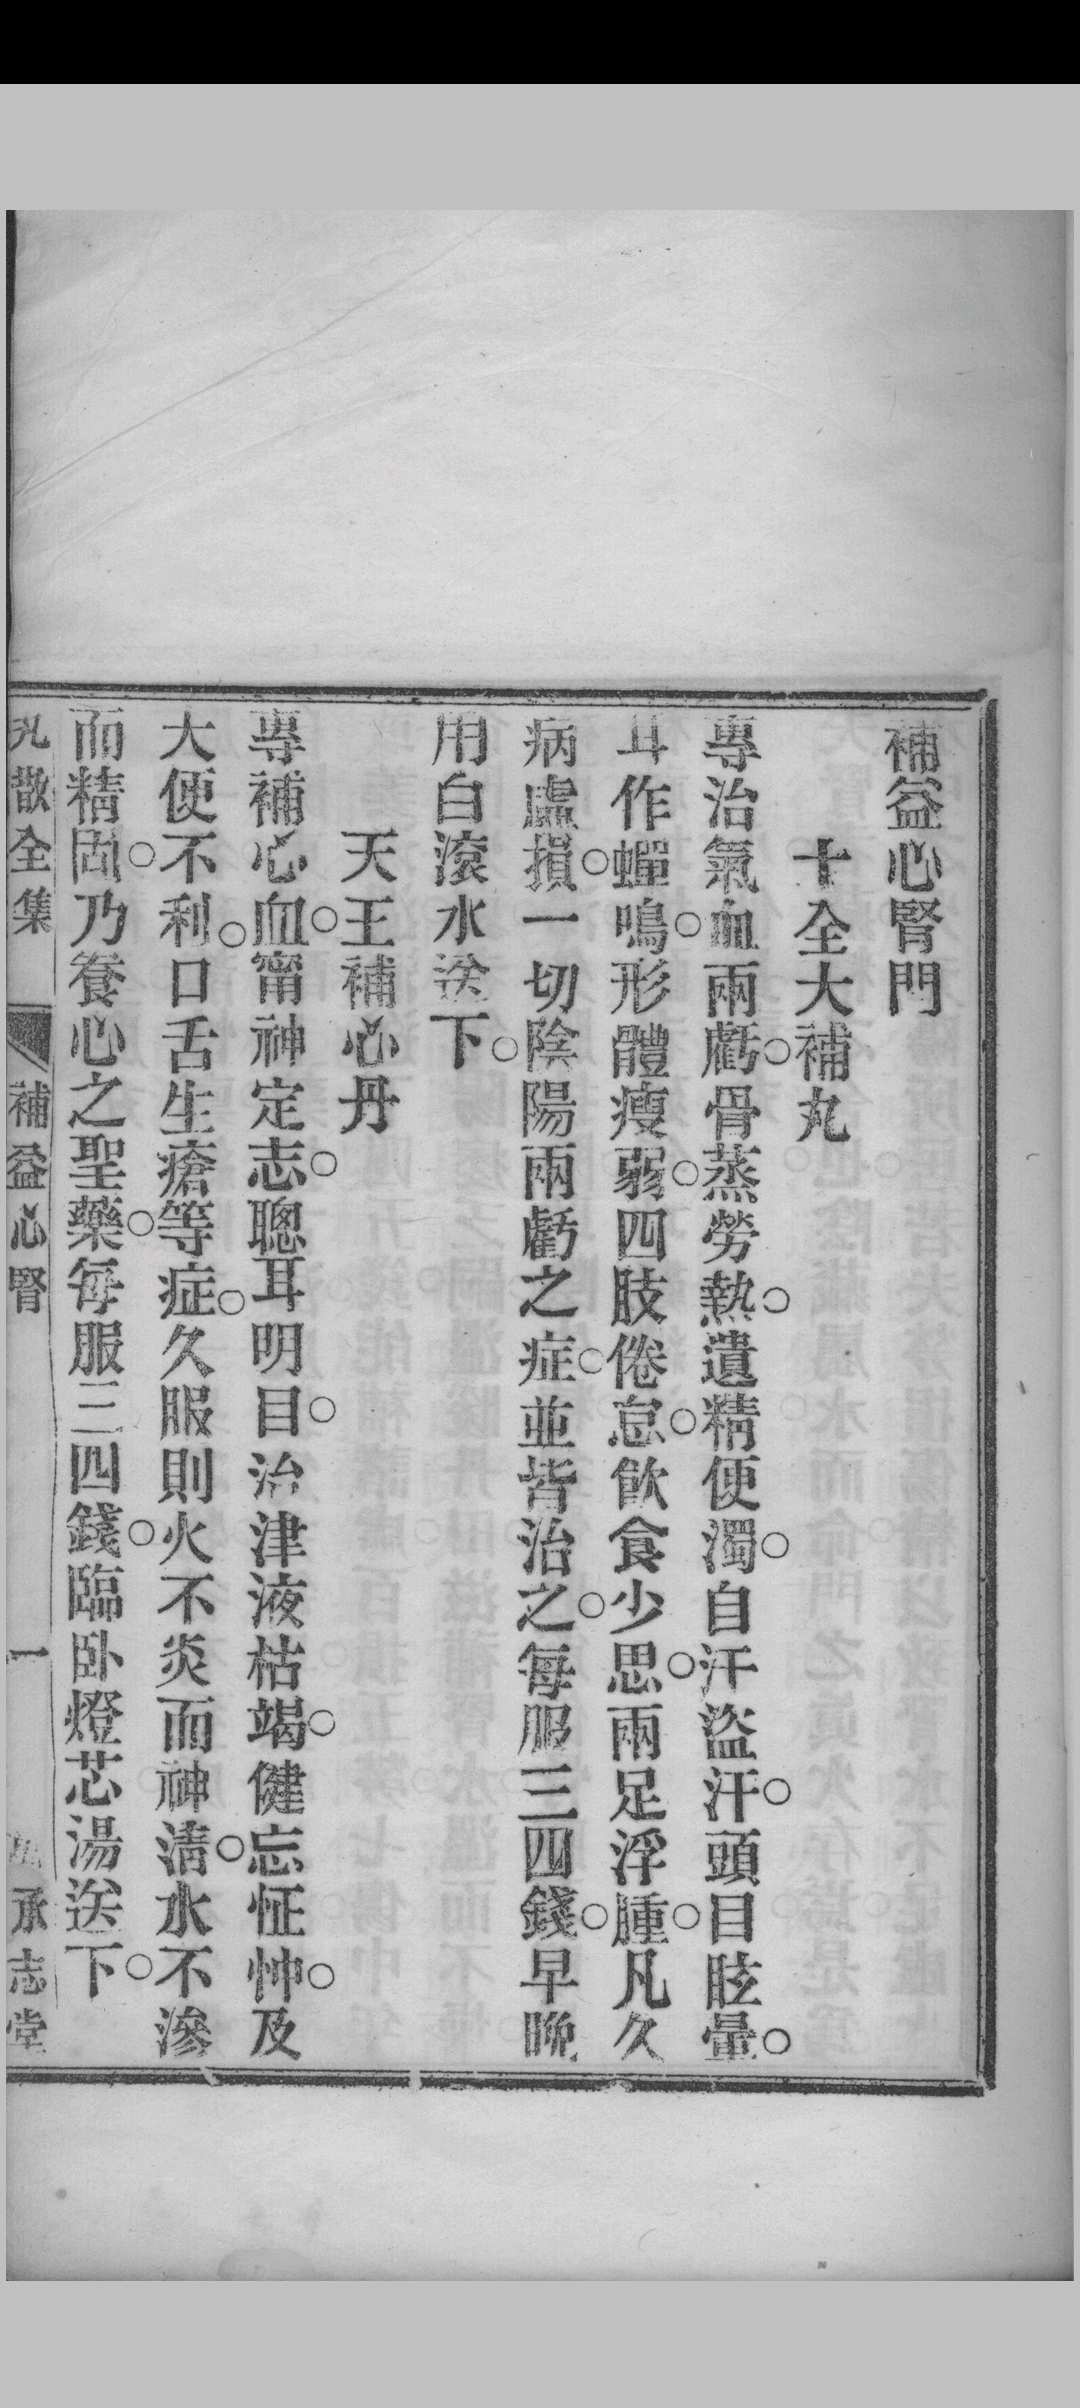 補益心腎門
十全大補丸
專治氣血兩虧○骨蒸勞熱○遺精便濁○自汗盜汗○頭目眩暈○
耳作蟬鳴○形體瘦弱○四肢倦怠○飲食少思○兩足浮腫○凡久
病虛損○一切陰陽兩虧之症○並皆治之○每服三四錢○早晚
用白滾水送下○
天王補心丹
專補心血○甯神定志○聰耳明目○治津液枯竭○健忘怔忡○及
大便不利○口舌生瘡等症○久服則火不炎而神清○水不滲
而精固○乃養心之聖藥○每服三四錢○臨卧燈芯湯送下○
丸散全集 補益心腎 一 承志堂